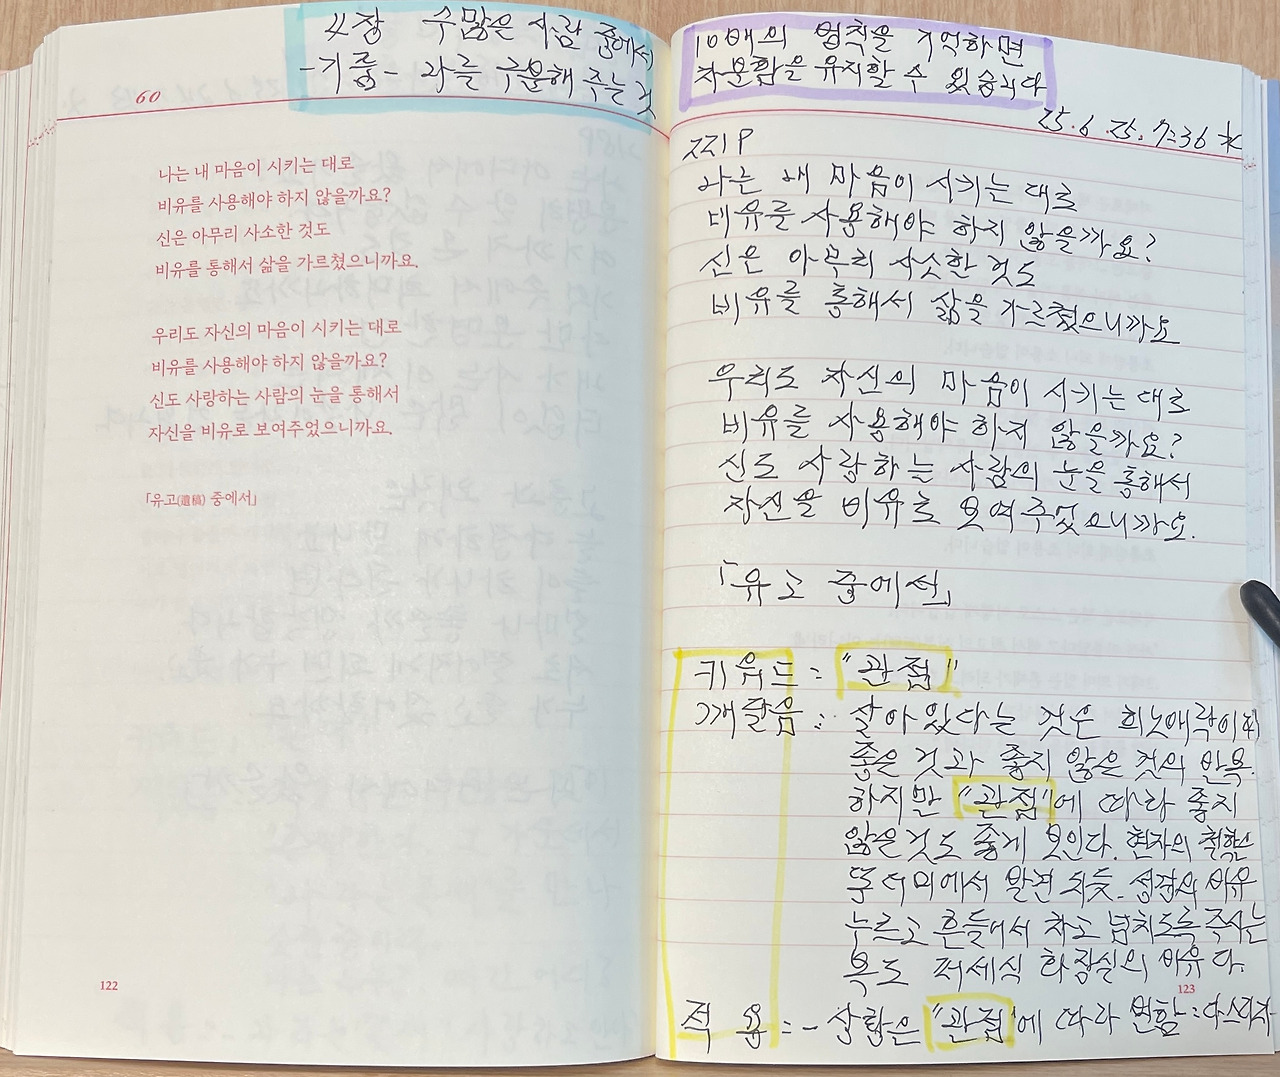 4장 수많은 사람 중에서
-기품- 나를 구분해 주는 것
60
나는 내 마음이 시키는 대로
비유를 사용해야 하지 않을까요?
신은 아무리 사소한 것도
비유를 통해서 삶을 가르쳤으니까요.
우리도 자신의 마음이 시키는 대로
비유를 사용해야 하지 않을까요?
신도 사랑하는 사람의 눈을 통해서
자신을 비유로 보여주었으니까요.
「유고(遺稿) 중에서」
122
10배의 법칙을 기억하면
차분함을 유지할 수 있습니다
25.6.25. 7:36 水
221P
나는 내 마음이 시키는 대로
비유를 사용해야 하지 않을까요?
신은 아무리 사소한 것도
비유를 통해서 삶을 가르쳤으니까요
우리도 자신의 마음이 시키는 대로
비유를 사용해야 하지 않을까요?
신도 사랑하는 사람의 눈을 통해서
자신을 비유로 보여주었으니까요.
「유고 중에서」
키워드 : "관점"
깨달음 : 살아있다는 것은 희노애락이며
좋은 것과 좋지 않은 것의 반복.
하지만 "관점"에 따라 좋지
않은것도 좋게 보인다. 현자의 철학은
똥더미에서 발견되듯. 성경의 비유
누르고 흔들어서 차고 넘치도록 주시는
복도 퍼세식 화장실의 비유다.
123
적 용 : - 상황은 "관점"에 따라 변함 :